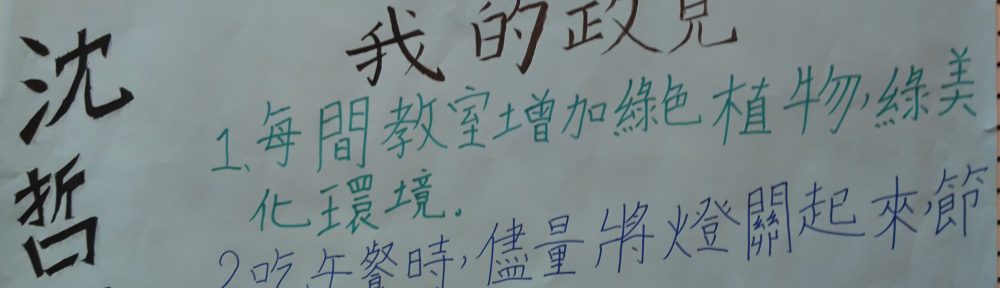 沈哲
我的政見
1、每間教室增加綠色植物,綠美
化環境。
2吃午餐時,儘量將燈關起來,節